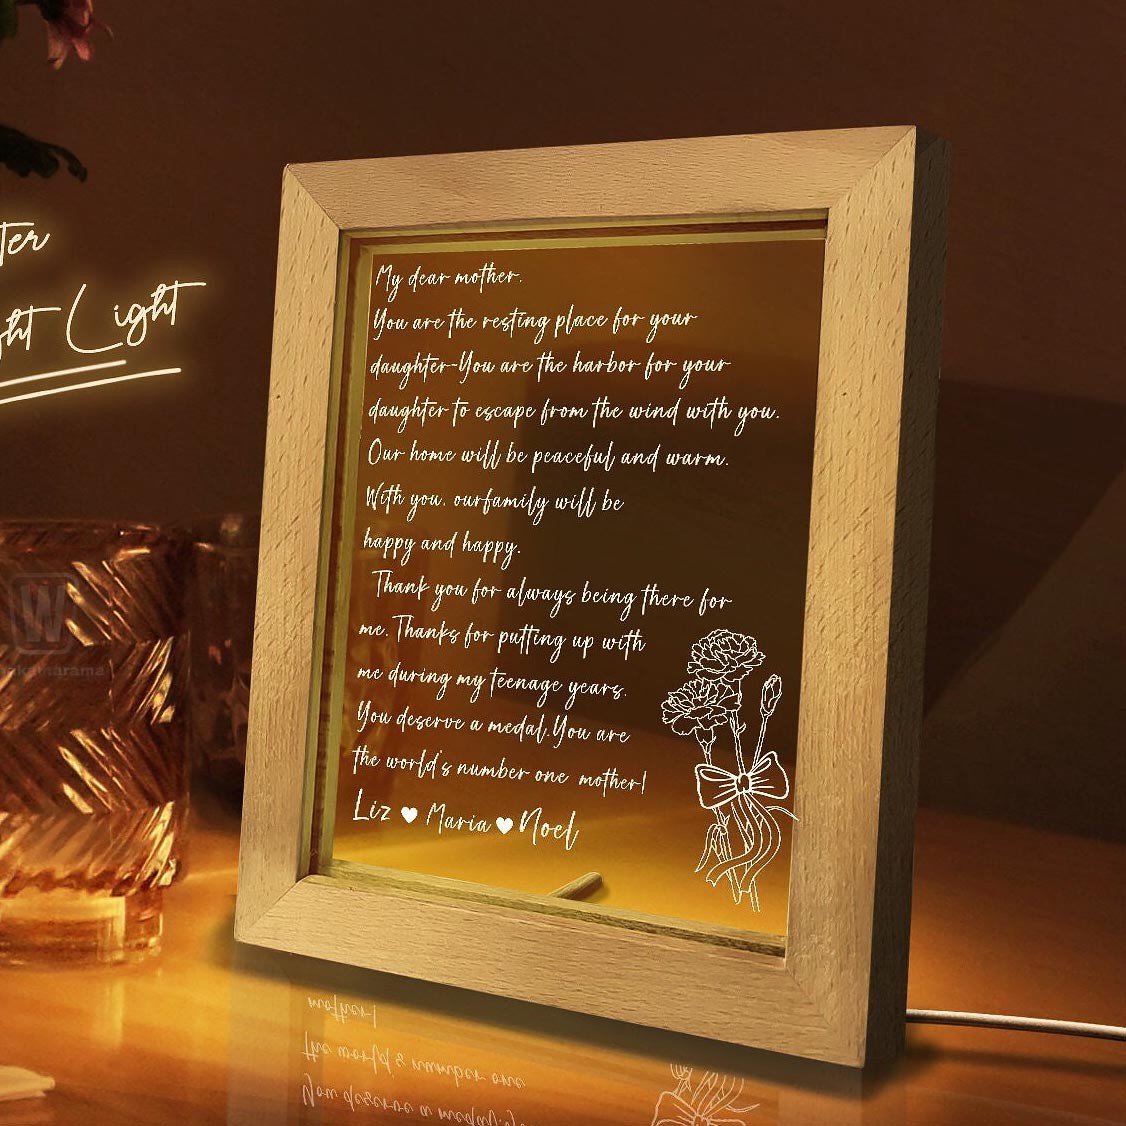 ter
ht Light
My dear mother.
You are the resting place for your
daughter-You are the harbor for your
daughter to escape from the wind with you.
Our home will be peaceful and warm.
With you. ourfamily will be
happy and happy.
Thank you for always being there for
me. Thanks for putting up with
me during my teenage years.
You deserve a medal.You are
the world's number one mother!
Liz ♥ Maria ♥ Noel
W
mother!
the world's number one
You deserve a medal.